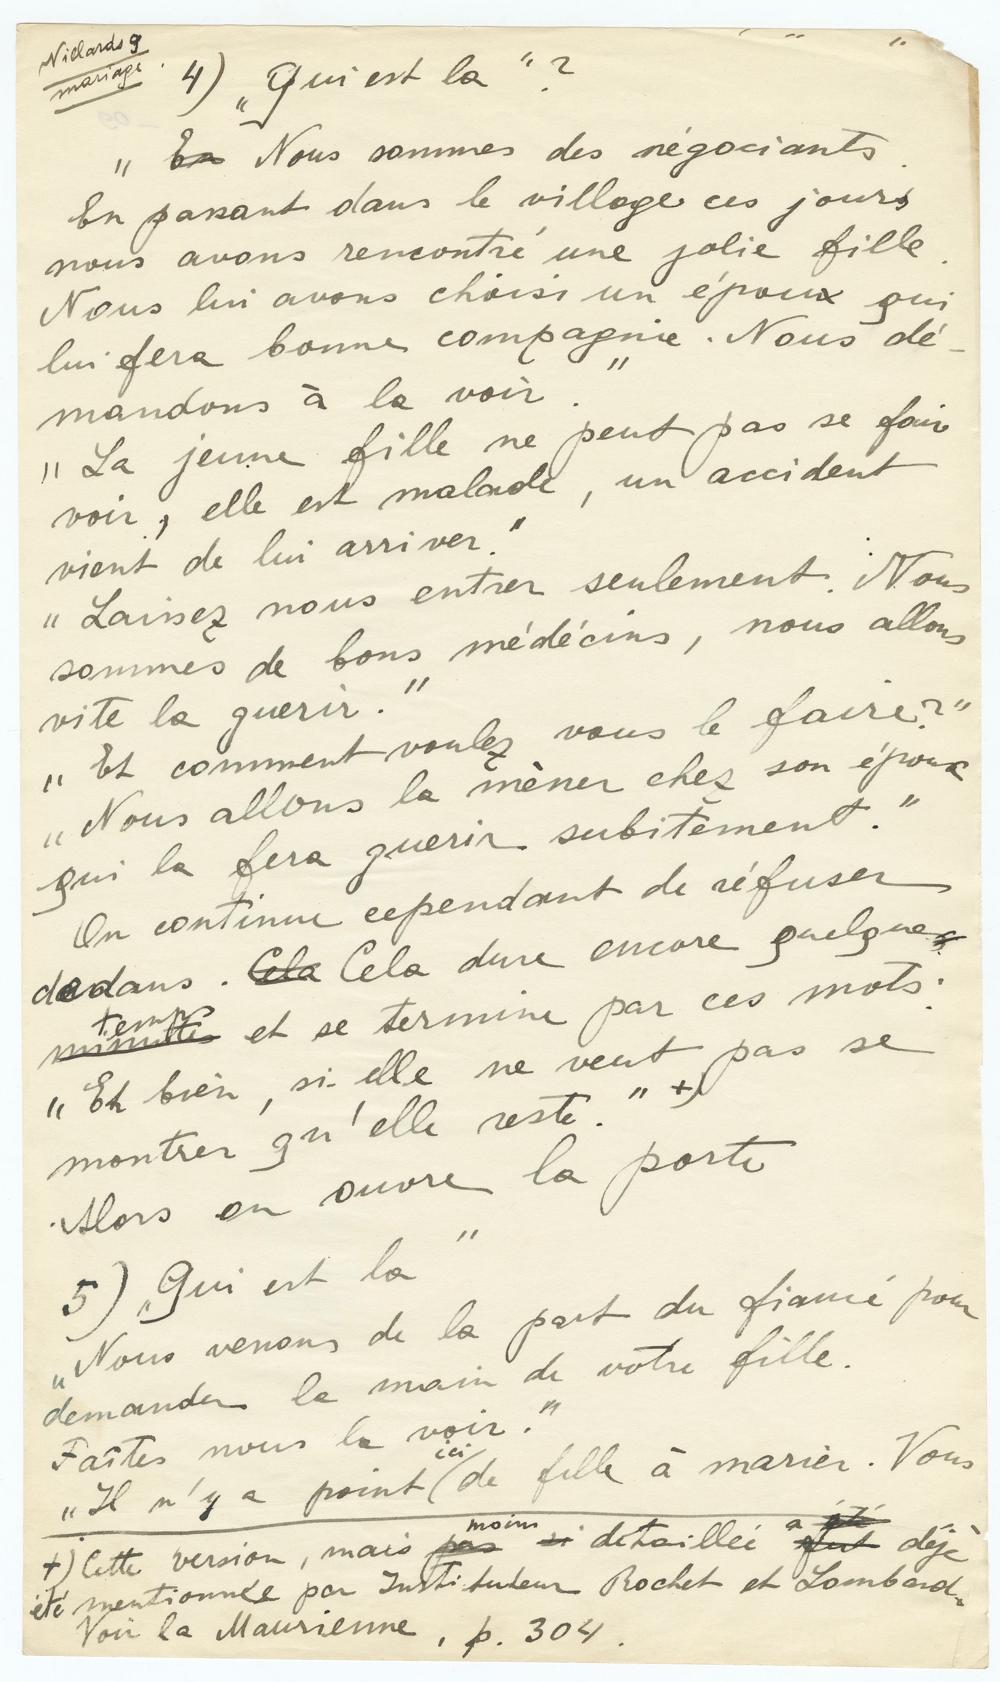 Villards 9
mariage.
4) „Qui est la “?
„ En Nous sommes des négociants.
En passant dans le village ces jours
nous avons rencontré une jolie fille.
Nous lui avons choisi un époux qui
lui fera bonne compagnie. Nous dé-
mandons à la voir.”
„ La jeune fille ne peut pas se fair
voir, elle est malade, un accident
vient de lui arriver.”
„ Laissez nous entrer seulement. Nous
sommes de bons médécins, nous allons
vite la guerir.”
„ Et comment voulez vous le faire?”
„ Nous allons la mèner chez son époux
qui la fera guerir subitement.”
On continue cependant de réfuser
dedans. Cela Cela dure encore quelques
temps
minutes et se termine par ces mots:
„ Eh bien, si elle ne veut pas se
montrer qu'elle reste.” +)
Alors on ouvre la porte
5) „Qui est la ”
„Nous venons de la part du fiancé pour
demander la main de votre fille.
Faîtes nous la voir.”
„Il n'y a point (ici de fille à marier. Vous
+) Cette version, mais pas moins si detaillée a été fut déjà
été mentionnée par Instituteur Rochet et Lombard.
Voir la Maurienne, p. 304.